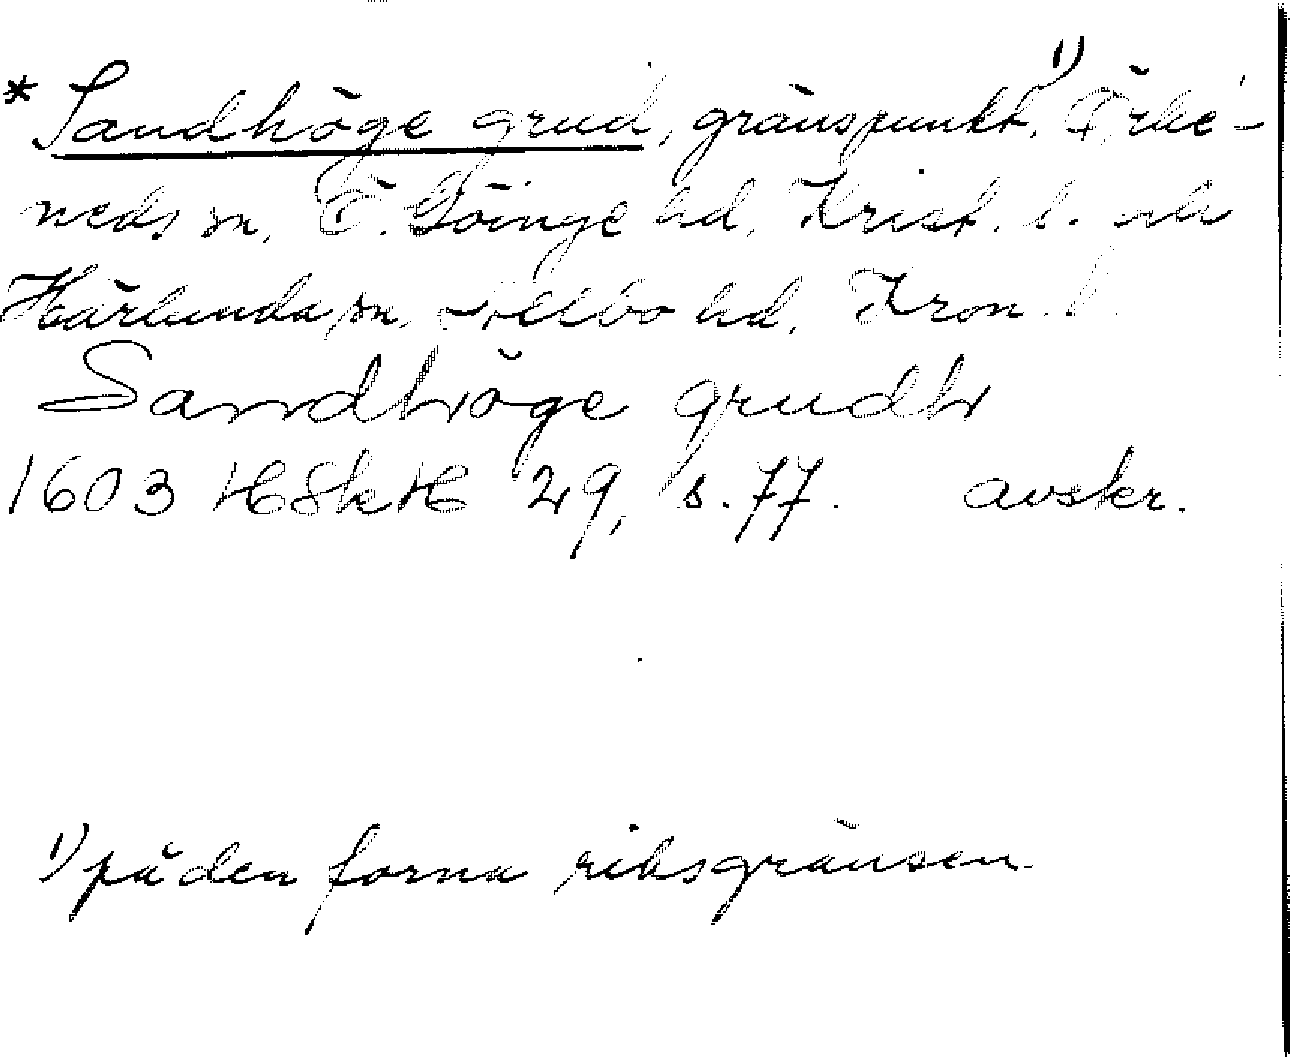 * Sandhöge grud, gränspunkt, 1) Örke-
neds sn, Ö. Göinge hd, Krist. l. och
Härlunda sn, Allbo hd, Kron. l.
Sandhöge grudh
1603 HSkH 29, s. 77. avskr.
1) på den forna riksgränsen